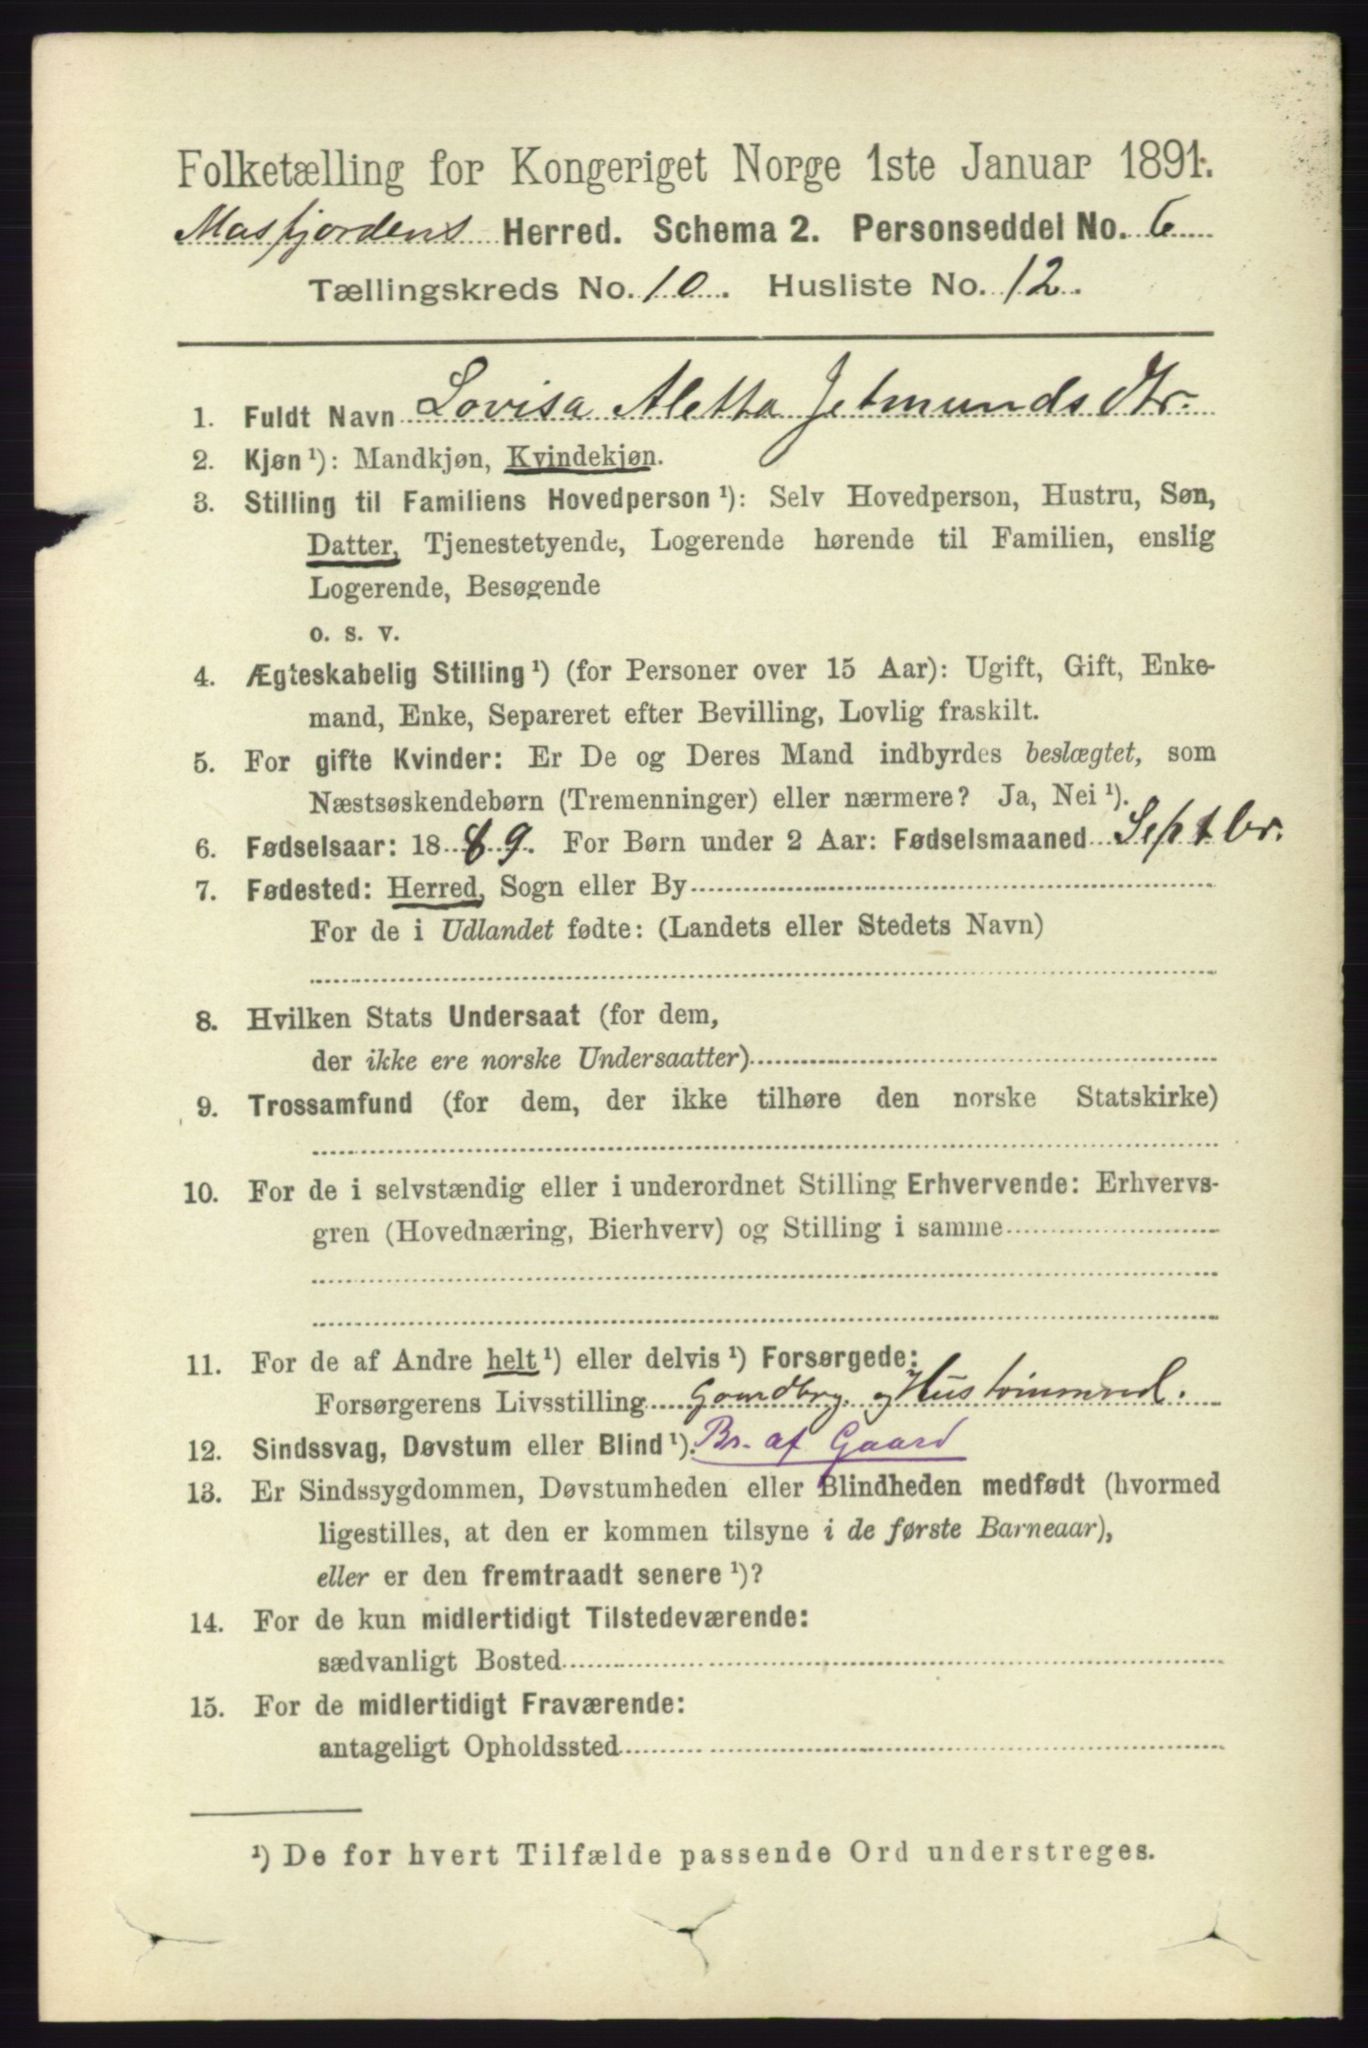 Folketælling for Kongeriget Norge 1ste Januar 1891.
Masfjordens Herred. Schema 2. Personseddel No. 6
Tællingskreds No. 10. Husliste No. 12.
1. Fuldt Navn Lovisa Aletta Jetmundsdtr.
2. Kjøn ¹): Mandkjøn, Kvindekjøn.
3. Stilling til Familiens Hovedperson ¹): Selv Hovedperson, Hustru, Søn,
Datter, Tjenestetyende, Logerende hørende til Familien, enslig
Logerende, Besøgende
o. s. v.
4. Ægteskabelig Stilling ¹) (for Personer over 15 Aar): Ugift, Gift, Enke-
mand, Enke, Separeret efter Bevilling, Lovlig fraskilt.
5. For gifte Kvinder: Er De og Deres Mand indbyrdes beslægtet, som
Næstsøskendebørn (Tremenninger) eller nærmere? Ja, Nei ¹).
6. Fødselsaar: 1889. For Børn under 2 Aar: Fødselsmaaned Septbr.
7. Fødested: Herred, Sogn eller By
For de i Udlandet fødte: (Landets eller Stedets Navn)
8. Hvilken Stats Undersaat (for dem,
der ikke ere norske Undersaatter)
9. Trossamfund (for dem, der ikke tilhøre den norske Statskirke)
10. For de i selvstændig eller i underordnet Stilling Erhvervende: Erhvervs-
gren (Hovednæring, Bierhverv) og Stilling i samme
11. For de af Andre helt ¹) eller delvis ¹) Forsørgede:
Forsørgerens Livsstilling Gaardbrg. og Hustømmerd.
12. Sindssvag, Døvstum eller Blind ¹). Br. af Gaard
13. Er Sindssygdommen, Døvstumheden eller Blindheden medfødt (hvormed
ligestilles, at den er kommen tilsyne i de første Barneaar),
eller er den fremtraadt senere ¹)?
14. For de kun midlertidigt Tilstedeværende:
sædvanligt Bosted
15. For de midlertidigt Fraværende:
antageligt Opholdssted
¹) De for hvert Tilfælde passende Ord understreges.